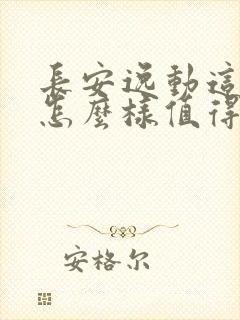 長安逸動這
怎麼樣值得
安格尔